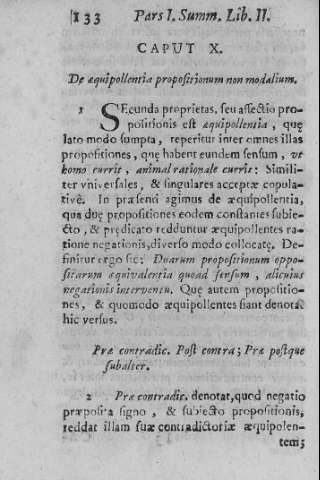 133 Pars I. Summ. Lib. II.
CAPUT X.
De æquipollentia propositionum non modalium.
1 SEcunda proprietas, seu affectio pro-
positionis est æquipollentia, quę
lato modo sumpta, reperitur inter omnes illas
propositiones, quę habent eundem sensum, vt
homo currit, animal rationale currit: Simili-
ter vniversales, & singulares acceptæ copula-
tivè. In præsenti agimus de æquipollentia,
qua duę propositiones eodem constantes subie-
cto, & prędicato redduntur æquipollentes ra-
tione negationis, diverso modo collocatę. De-
finitur ergo sic: Duarum propositionum oppo-
sitarum æquivalentia quoad sensum, alicuius
negationis interventu. Quę autem propositio-
nes, & quomodo æquipollentes fiant denotat
hic versus.
Præ contradic. Post contra; Præ postque
subalter.
2 Præ contradic. denotat, quod negatio
præposita signo, & subiecto propositionis,
reddat illam suæ contradictoriæ æquipolen-
tem;